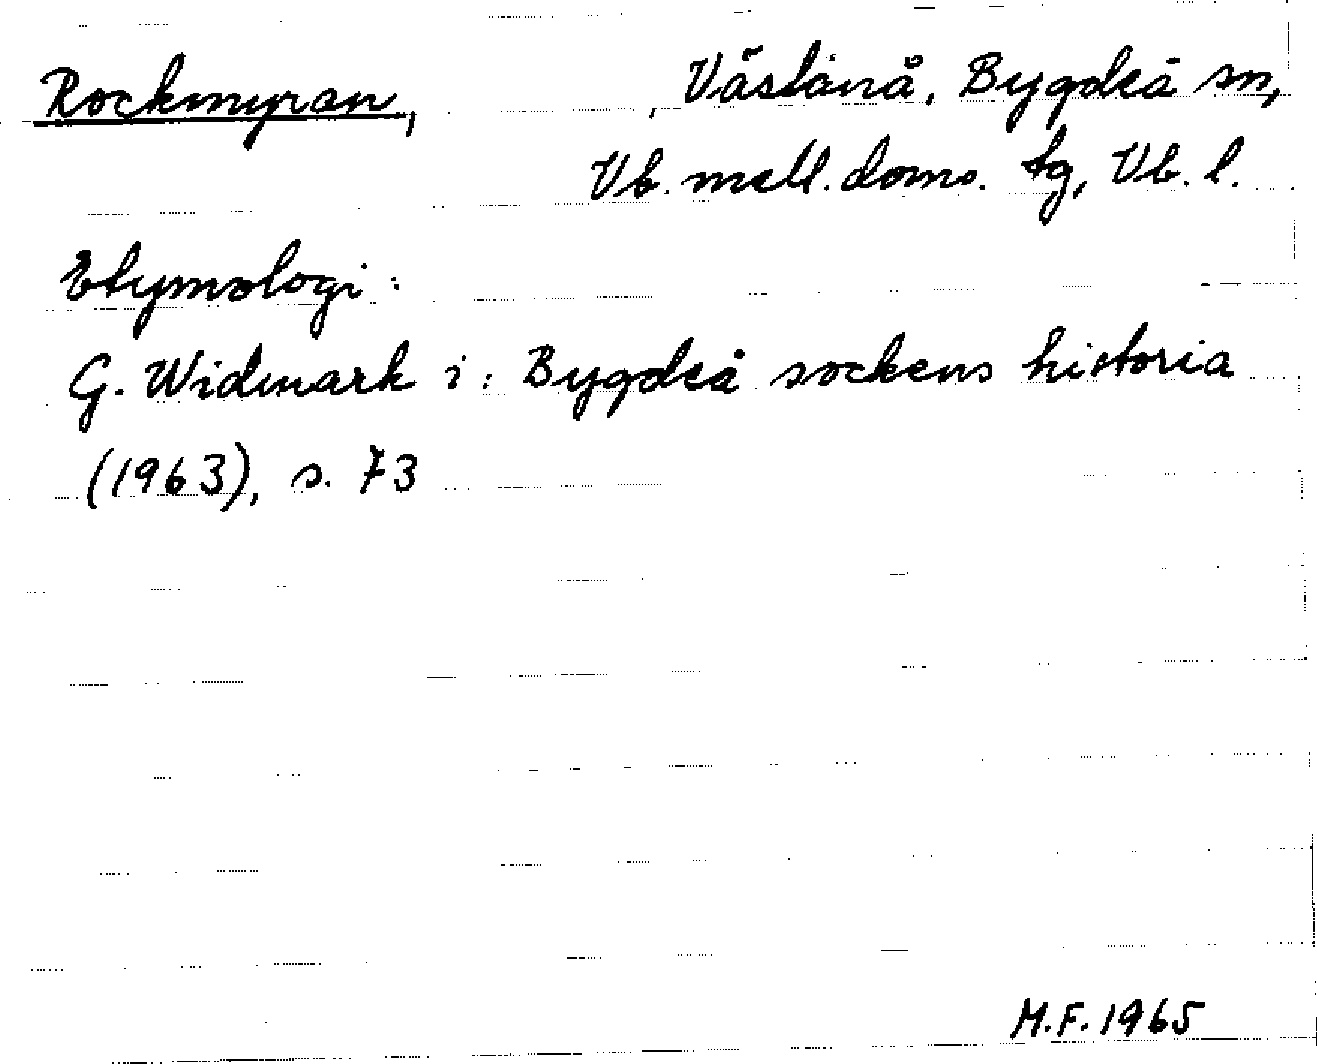 Rockmyran, , Västanå, Bygdeå sn,
Vb. mell. doms. tg, Vb. l.
Etymologi:
G. Widmark i: Bygdeå sockens historia
(1963), s. 73
M.F. 1965